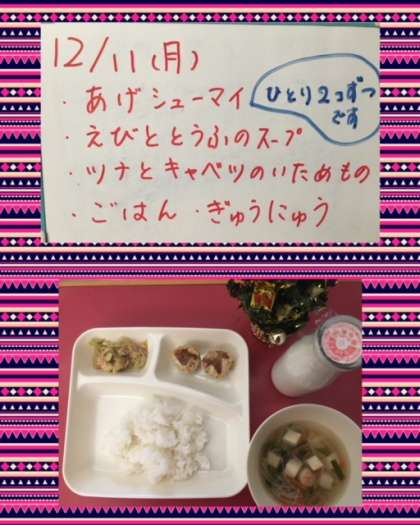 12/11(月)
・あげシューマイ
ひとり2コずつ
です
・えびととうふのスープ
・ツナとキャベツのいためもの
・ごはん ・ぎゅうにゅう